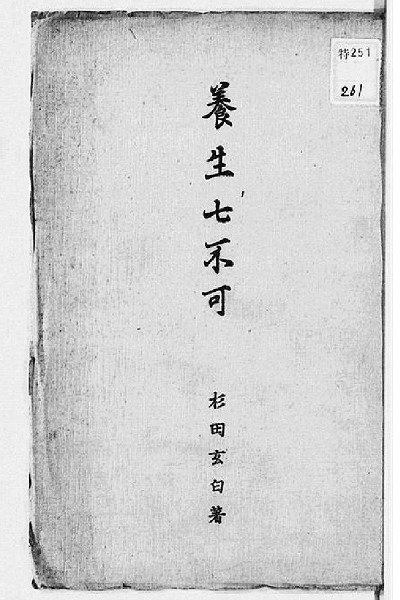 養生七不可
杉田玄白著
特251
261